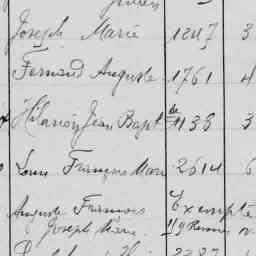 Joseph Marie 1247 3
Fernand Auguste 1761 4
Hilarion Jean Bapte 1133 3
Louis François Marie 2614 6
Auguste François Exempté
Joseph Marie